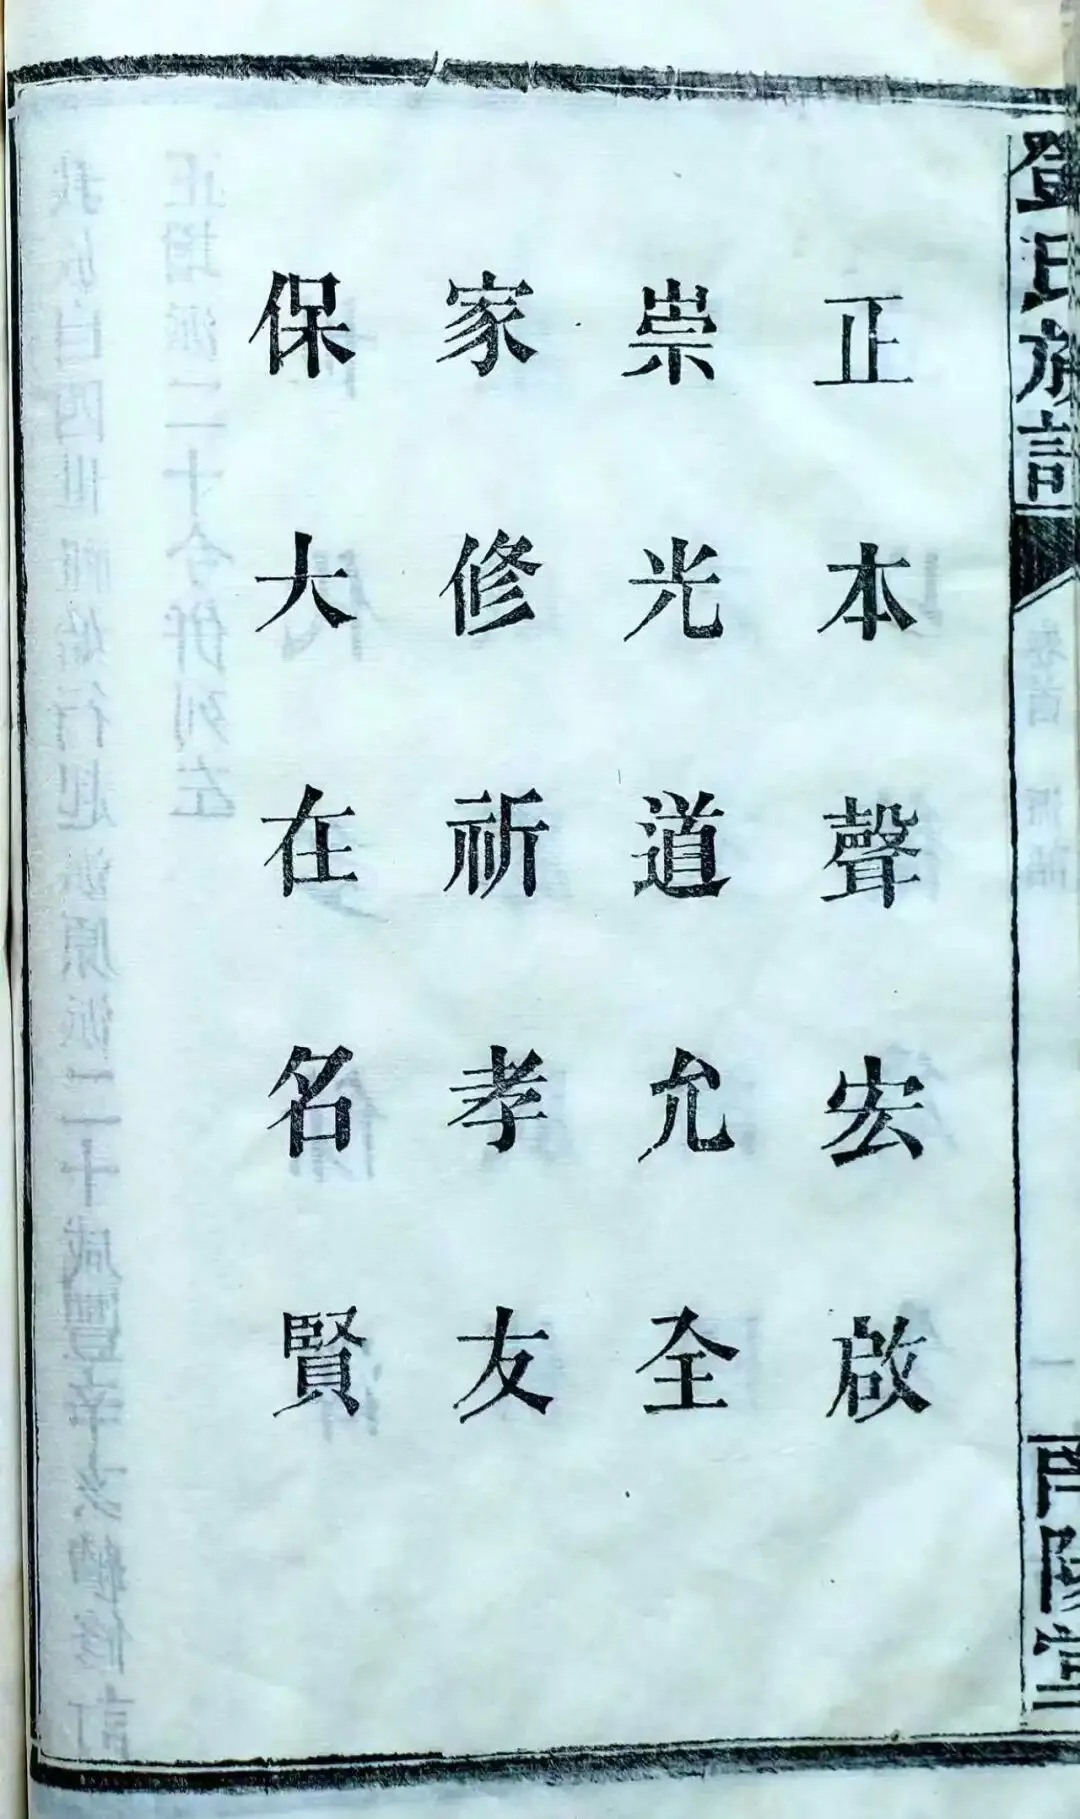 鄧氏族譜
正本聲宏啟
崇光道允全
家修祈孝友
保大在名賢